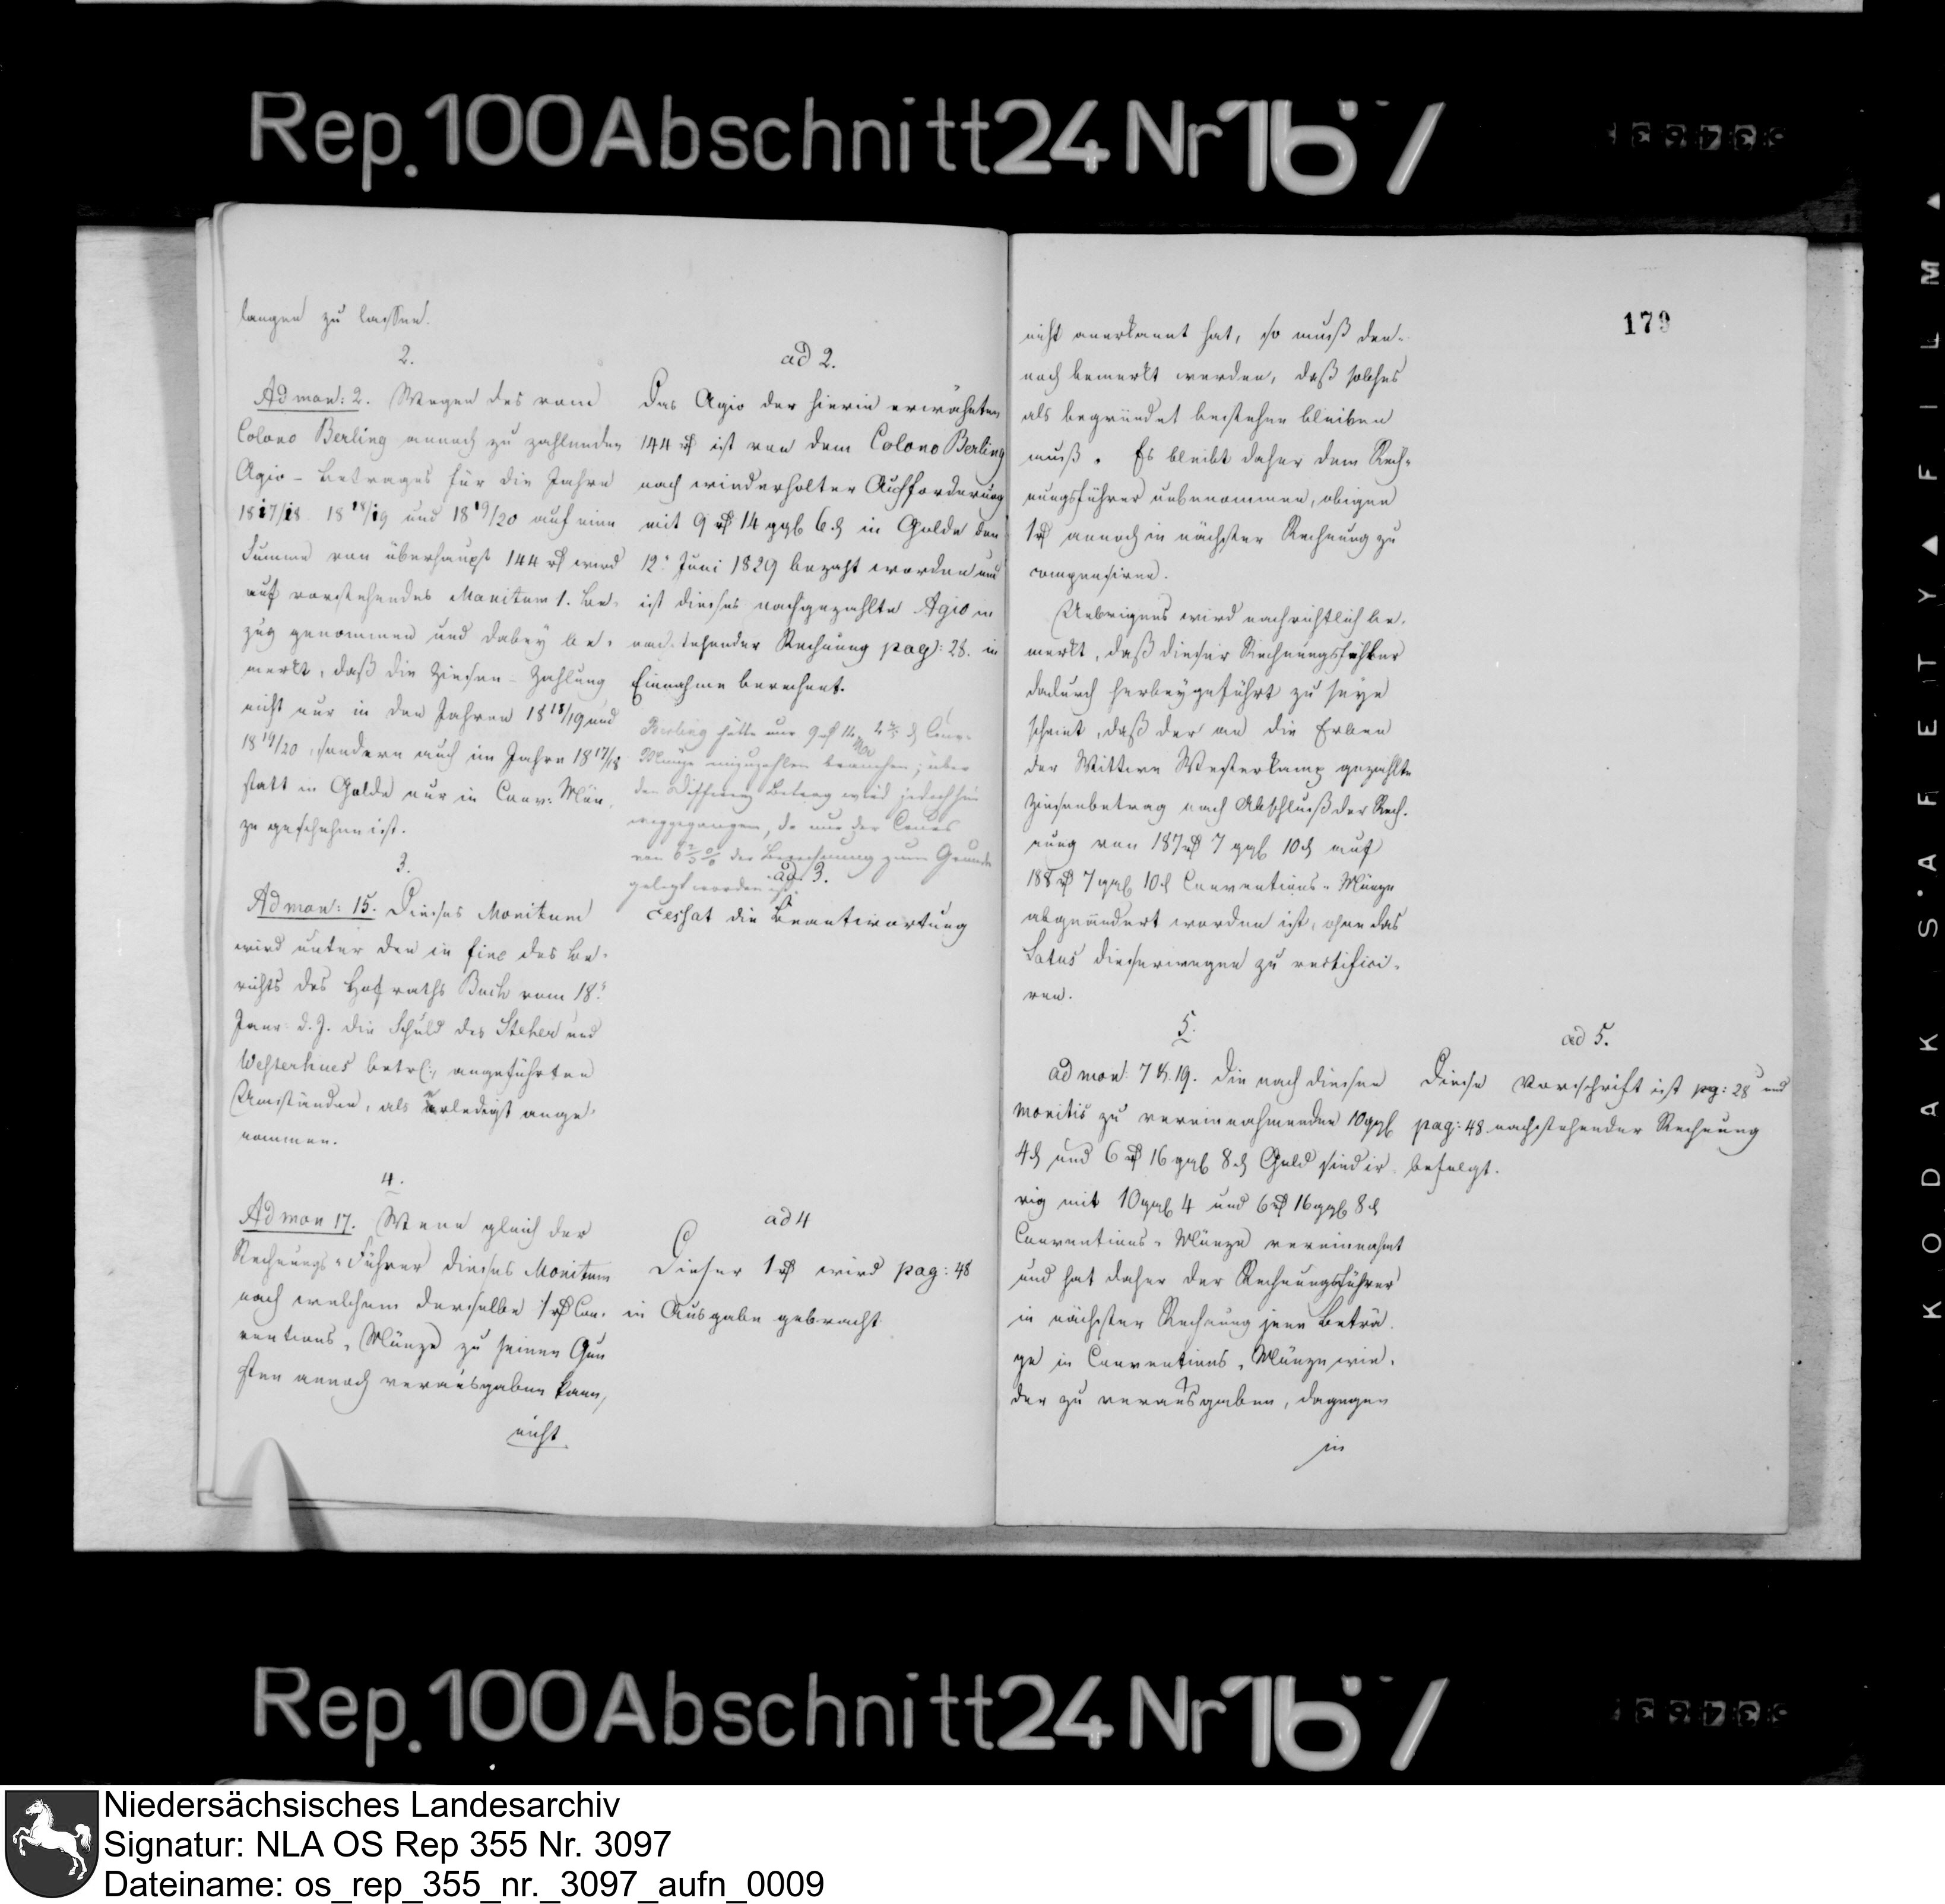 Rep. 100 Abschnitt 24 Nr 167
langen zu lassen.
2.
Ad mon: 2. Wegen des vom
Colono Berling annoch zu zahlenden
Agio-Betrages für die Jahre
1817/18 1818/19 und 1819/20 auf eine
Summe von überhaupt 144 rℓ wird
auf vorstehendes Monitum 1. Be-
zug genommen und dabey be-
merkt, daß die Zinsen-Zahlung
nicht nur in den Jahren 1818/19 und
1819/20, sondern auch im Jahre 1817/18
statt in Golde nur in Conv: Mün-
ze geschehen ist.
3.
Ad mon: 15. Dieses Monitum
wird unter den in fine des Be-
richts des Hofraths Buch vom 18.
Janr d. J. die Schuld des Steher und
Westerhues betrf:, angeführten
Umständen, als erledigt ange-
nommen.
4.
Ad mon 17. Wenn gleich der
Rechnungs-Führer dieses Monitum
nach welchem derselbe 1 rℓ Con-
ventions-Münze zu seinen Gun
sten annoch verausgaben kann,
nicht
ad 2.
Das Agio der hierin erwähnten
144 rℓ ist von dem Colono Berling
nach wiederholter Aufforderung
mit 9 rℓ 14 ggl 6 d in Golde den
12. Juni 1829 bezahlt worden und
ist dieses nachgezahlte Agio in
nachstehender Rechnung pag: 28. in
Einnahme berechnet.
Berling hätte nur 9 rℓ 14 Conv-
Münze einzuzahlen brauchen; über
den Differenz Betrag wird jedoch hin
weggegangen, da nur der Cours
von 6 2/3 % der Berechnung zum Grunde
gelegt worden ist.
ad 3.
cessat die Beantwortung
ad 4
Dieser 1 rℓ wird pag: 48
in Ausgabe gebracht
179
nicht anerkannt hat, so muß den-
noch bemerkt werden, daß solches
als begründet bestehen bleiben
muß. Es bleibt daher dem Rech-
nungsführer unbenommen, obigen
1 rℓ annoch in nächster Rechnung zu
compensiren.
Uebrigens wird nachrichtlich be-
merkt, daß dieser Rechnungsfehler
dadurch herbeygeführt zu seyn
scheint, daß der an die Erben
der Wittwe Westerkamp gezahlte
Zinsenbetrag nach Abschluß der Rech-
nung von 187 rℓ 7 ggl 10 d auf
188 rℓ 7 ggl 10 d Conventions-Münze
abgeändert worden ist, ohne das
Latus dieserwegen zu rectifici-
ren.
5.
ad mon: 7 & 19. Die nach diesen
monitis zu vereinnahmenden 10 ggl
4 d und 6 rℓ 16 ggl 8 d Gold sind ir-
rig mit 10 ggl 4 und 6 rℓ 16 ggl 8 d
Conventions-Münze vereinnahmt
und hat daher der Rechnungsführer
in nächster Rechnung jene Beträ-
ge in Conventions-Münze wie-
der zu verausgaben, dagegen
in
ad 5.
Diese Vorschrift ist pg: 28 und
pag: 48 nachstehender Rechnung
befolgt.
Rep. 100 Abschnitt 24 Nr 167
KODAK SAFETY FILM
Niedersächsisches Landesarchiv
Signatur: NLA OS Rep 355 Nr. 3097
Dateiname: os_rep_355_nr._3097_aufn_0009